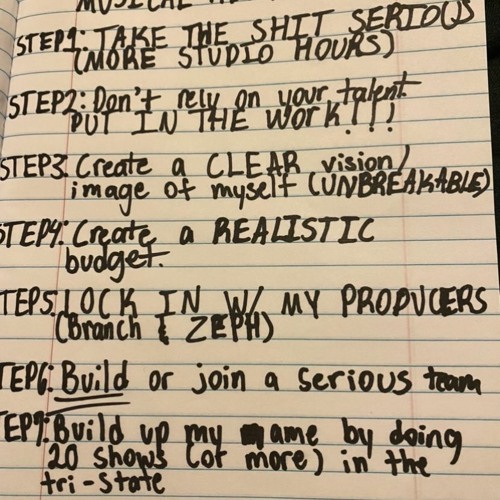 MUSICAL
STEP1: TAKE THE SHIT SERIOUS
(MORE STUDIO HOURS)
STEP2: Don't rely on your talent
PUT IN THE WORK!!!
STEP3 Create a CLEAR vision/
image of myself (UNBREAKABLE)
STEP4: Create a REALISTIC
budget.
TEP5: LOCK IN W/ MY PRODUCERS
(Branch & ZEPH)
TEP6: Build or join a serious team
TEP7: Build up my name by doing
20 shows (or more) in the
tri-state